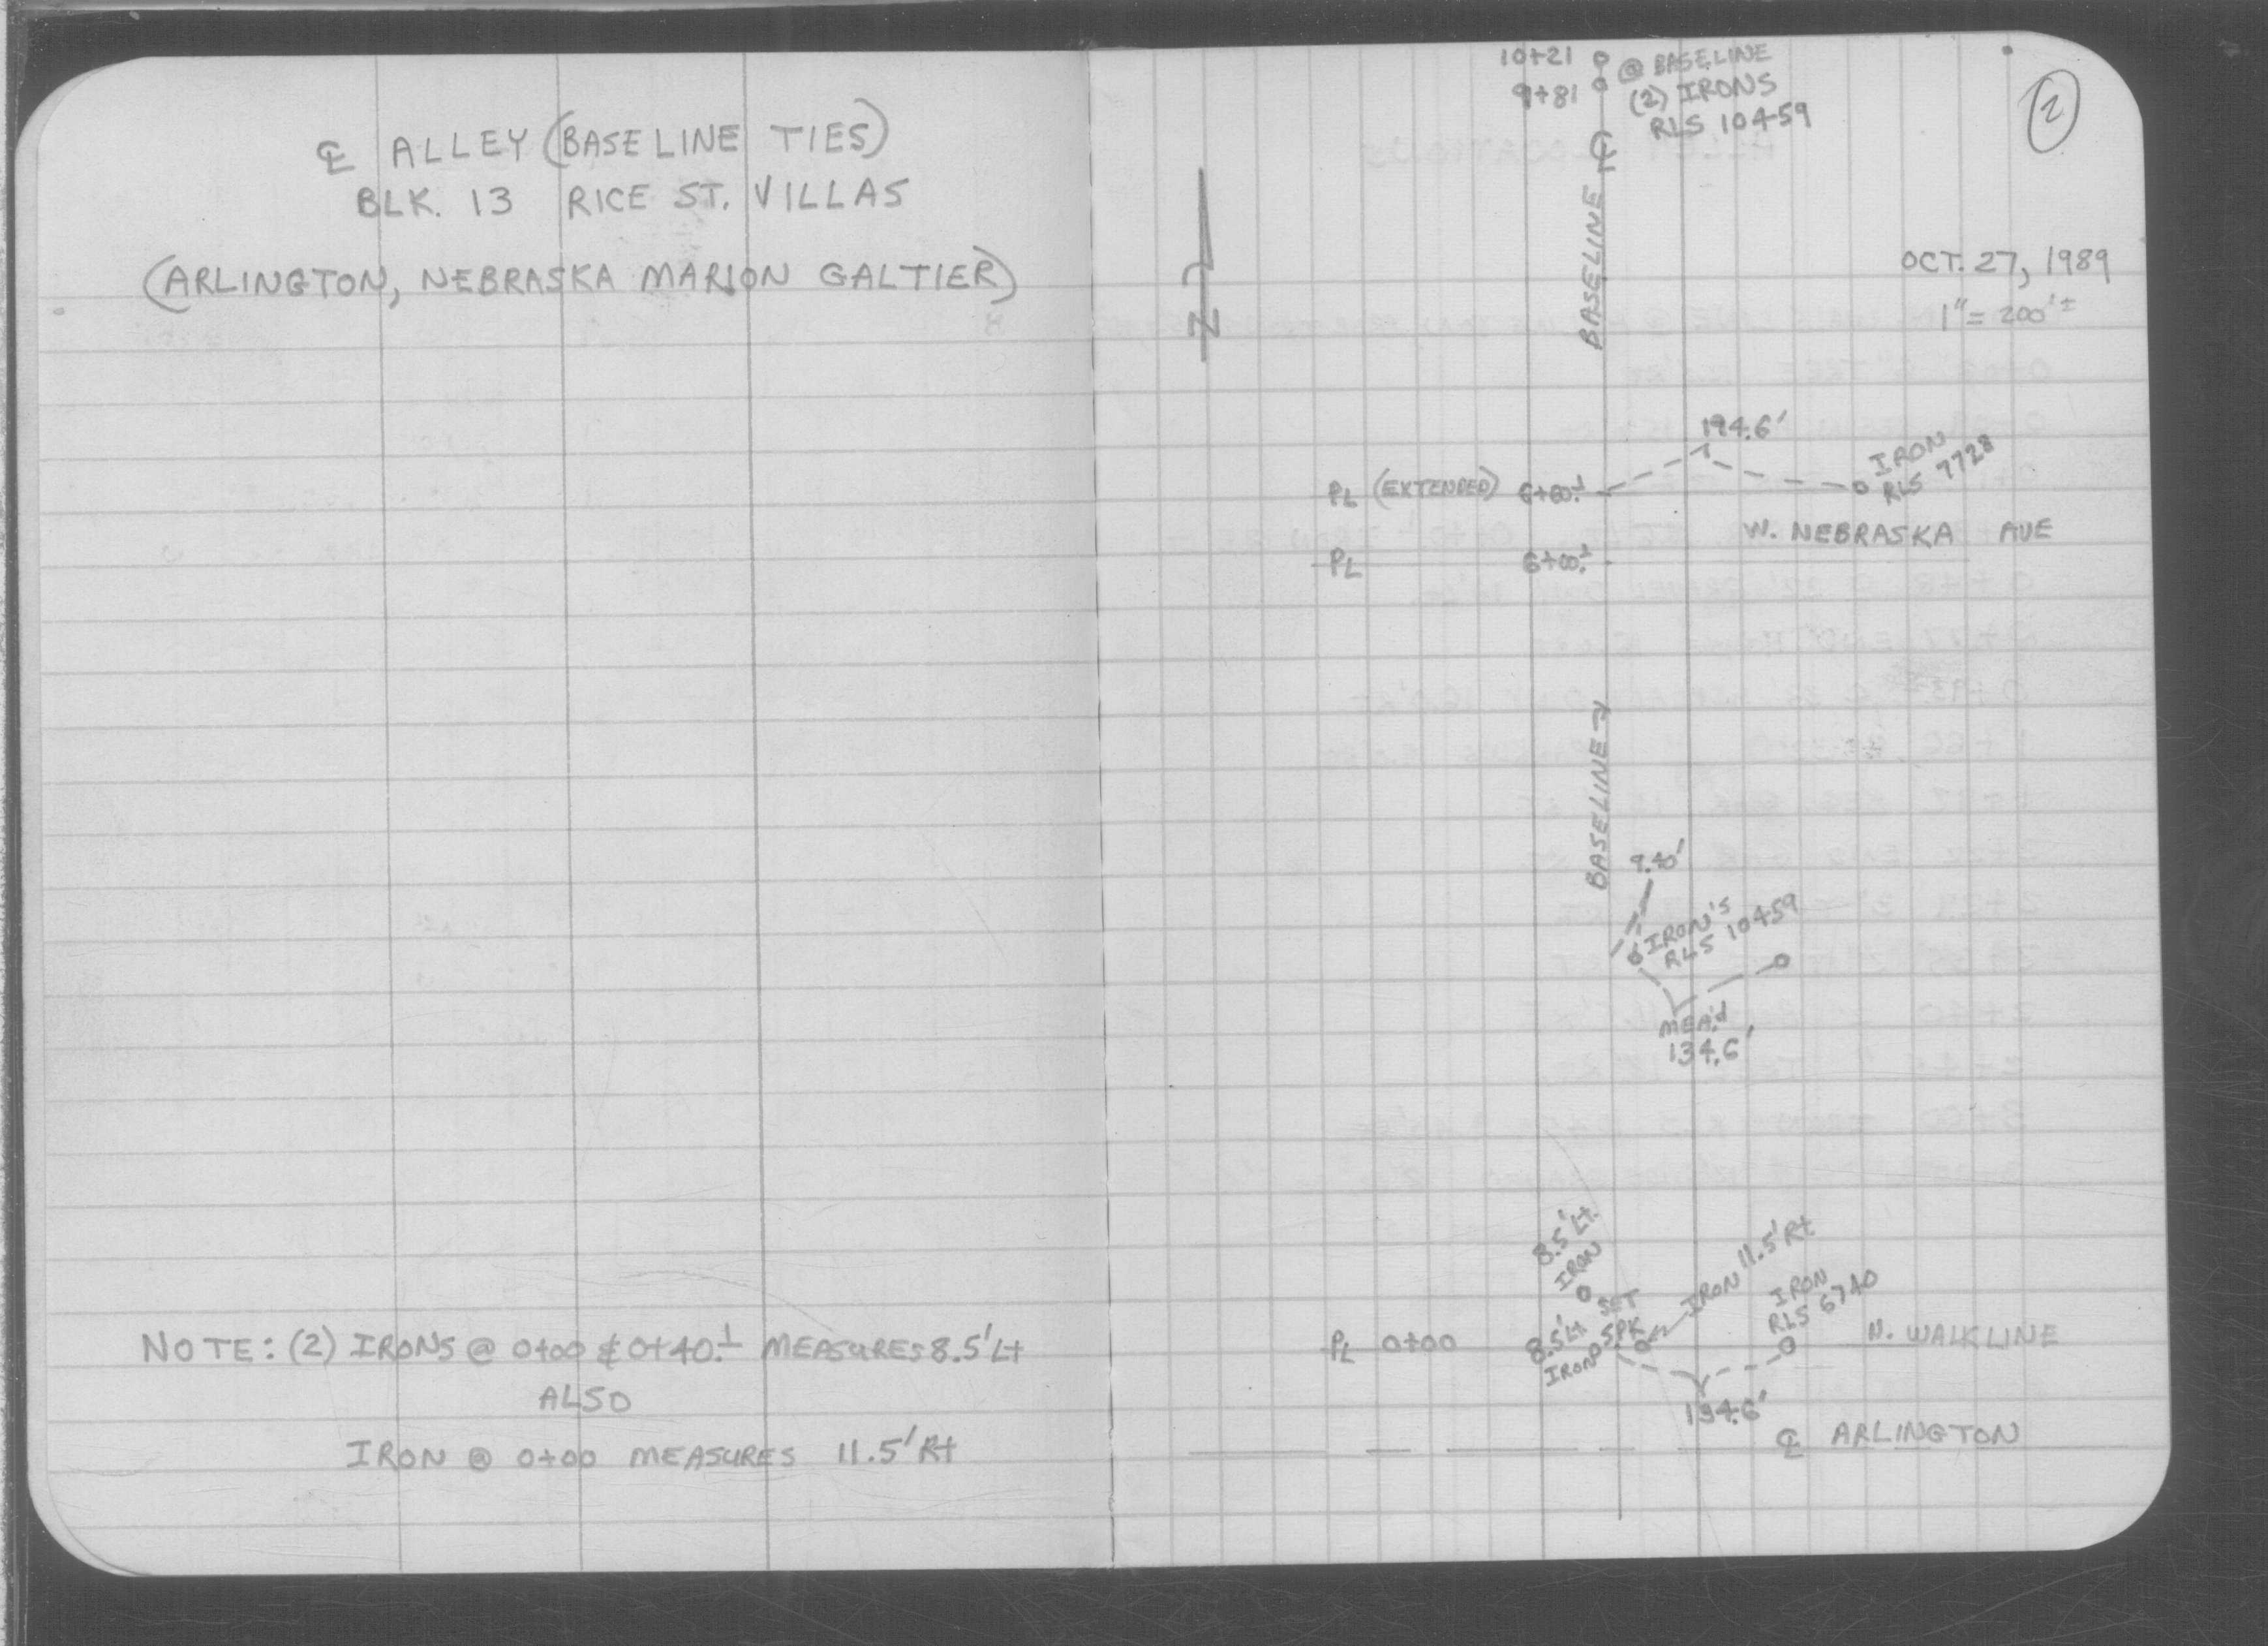 ℄ ALLEY (BASELINE TIES)
BLK. 13 RICE ST. VILLAS
(ARLINGTON, NEBRASKA MARION GALTIER)
NOTE: (2) IRONS @ 0+00 & 0+40.± MEASURES 8.5' Lt
ALSO
IRON @ 0+00 MEASURES 11.5' Rt
2
10+21
9+81
@ BASELINE
(2) IRONS
RLS 10459
BASELINE ℄
N
OCT. 27, 1989
1" = 200'±
194.6'
IRON
RLS 7728
PL (EXTENDED) 6+60.±
W. NEBRASKA AVE
PL 6+00.±
BASELINE
9.40'
IRON'S
RLS 10459
MEA'd
134.6'
8.5' Lt.
IRON
SET
SPK
8.5' Lt
IRON
IRON 11.5' Rt
IRON
RLS 6740
PL 0+00
N. WALKLINE
194.6'
℄ ARLINGTON